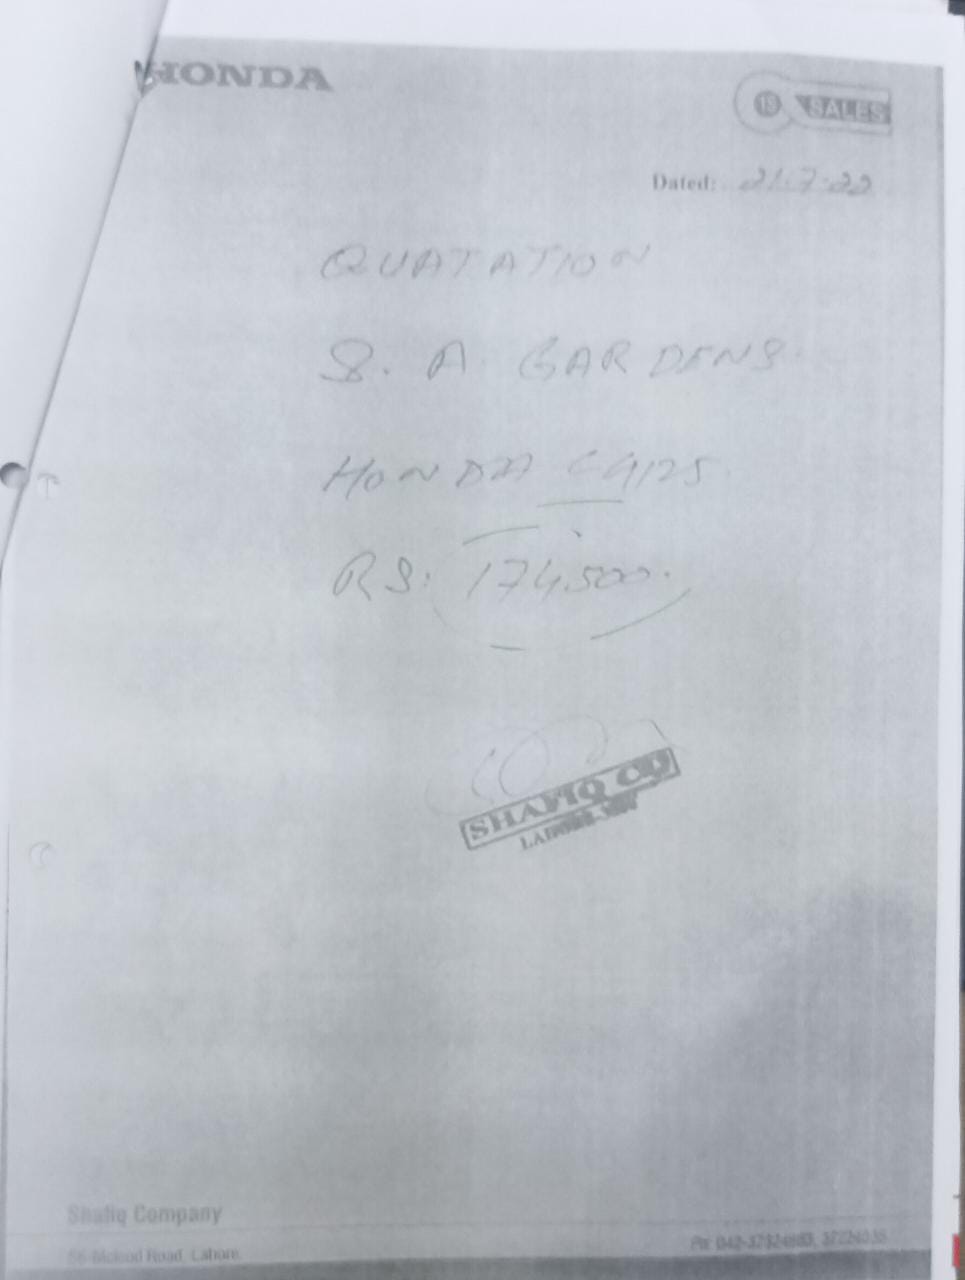 HONDA
1S SALES
Dated: 21.7.22
QUATATION
S. A. GARDENS.
HONDA CG125.
RS: 174,500.
SHAFIQ CO
LAHORE
Shafiq Company
Mcleod Road, Lahore.
Ph: 042-